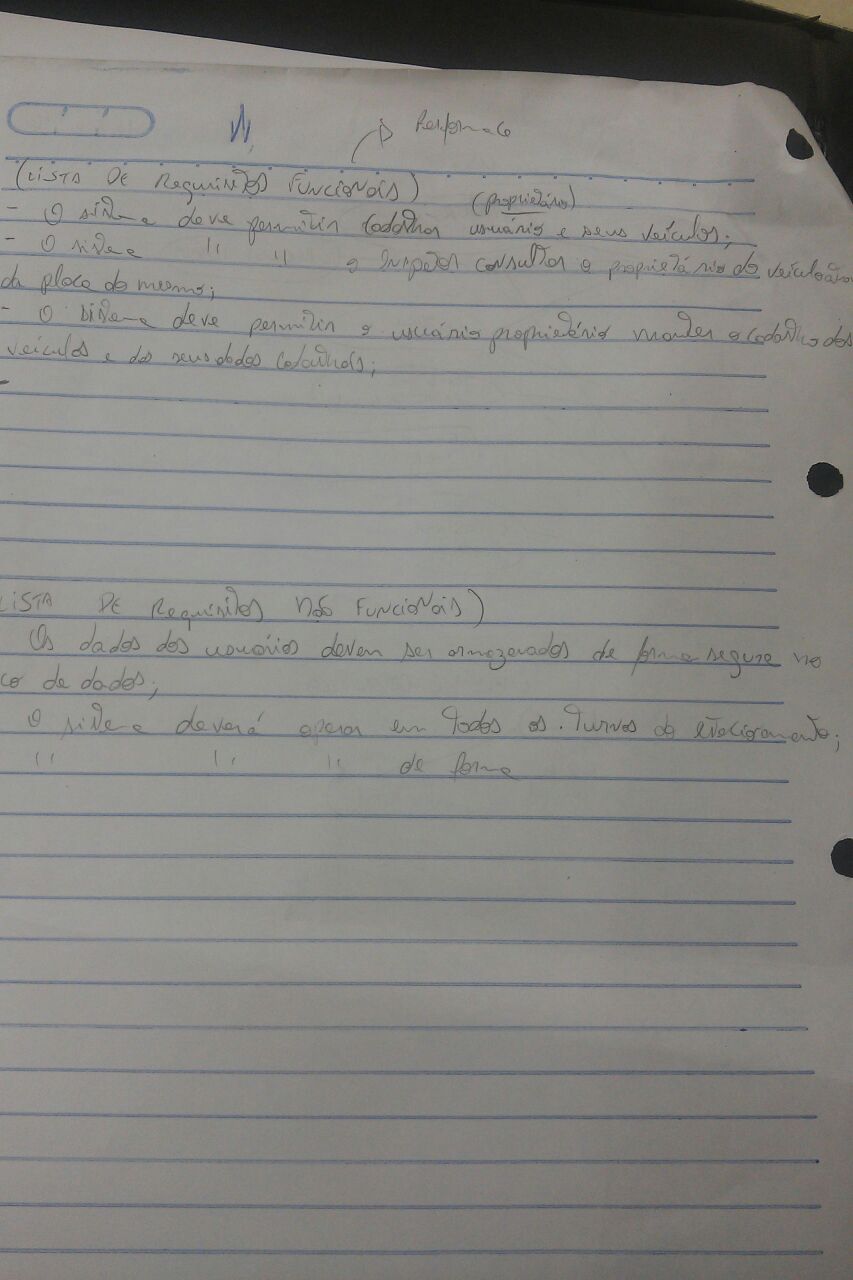 (LISTA DE Requisitos FUNCIONAIS)
(proprietário)
- O sistema deve permitir Cadastrar usuário e seus veículos;
- O sistema " " o Inspetor consultar o proprietário do veículo
da placa do mesmo;
- O sistema deve permitir o usuário proprietário manter o cadastro dos
veículos e dos seus dados cadastrais;
LISTA DE Requisitos NÃO FUNCIONAIS)
Os dados dos usuários devem ser armazenados de forma segura no
co de dados;
O sistema deverá operar em todos os turnos do estacionamento;
" " " de forma